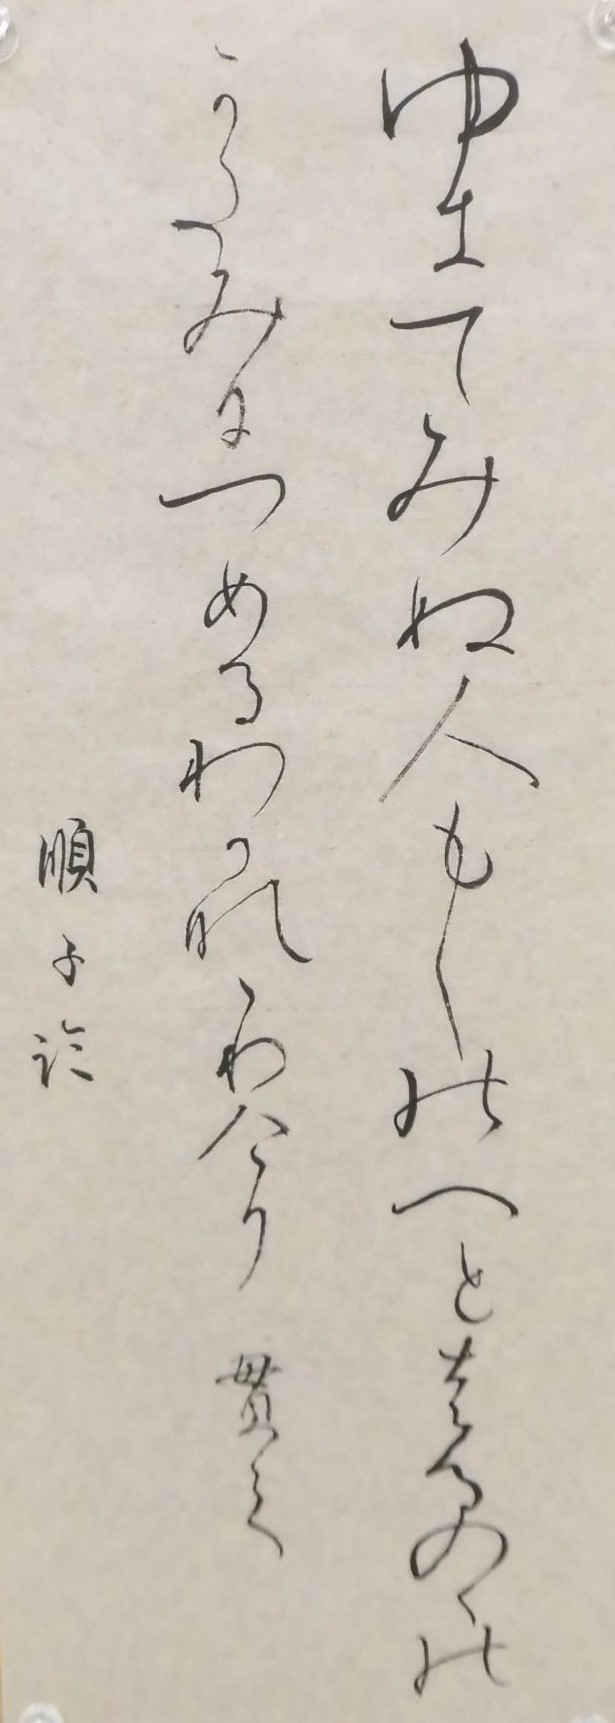 ゆきてみぬ人もしのへとはるのゝの
かたみにつめるわかなゝりけり 貫之
順子臨